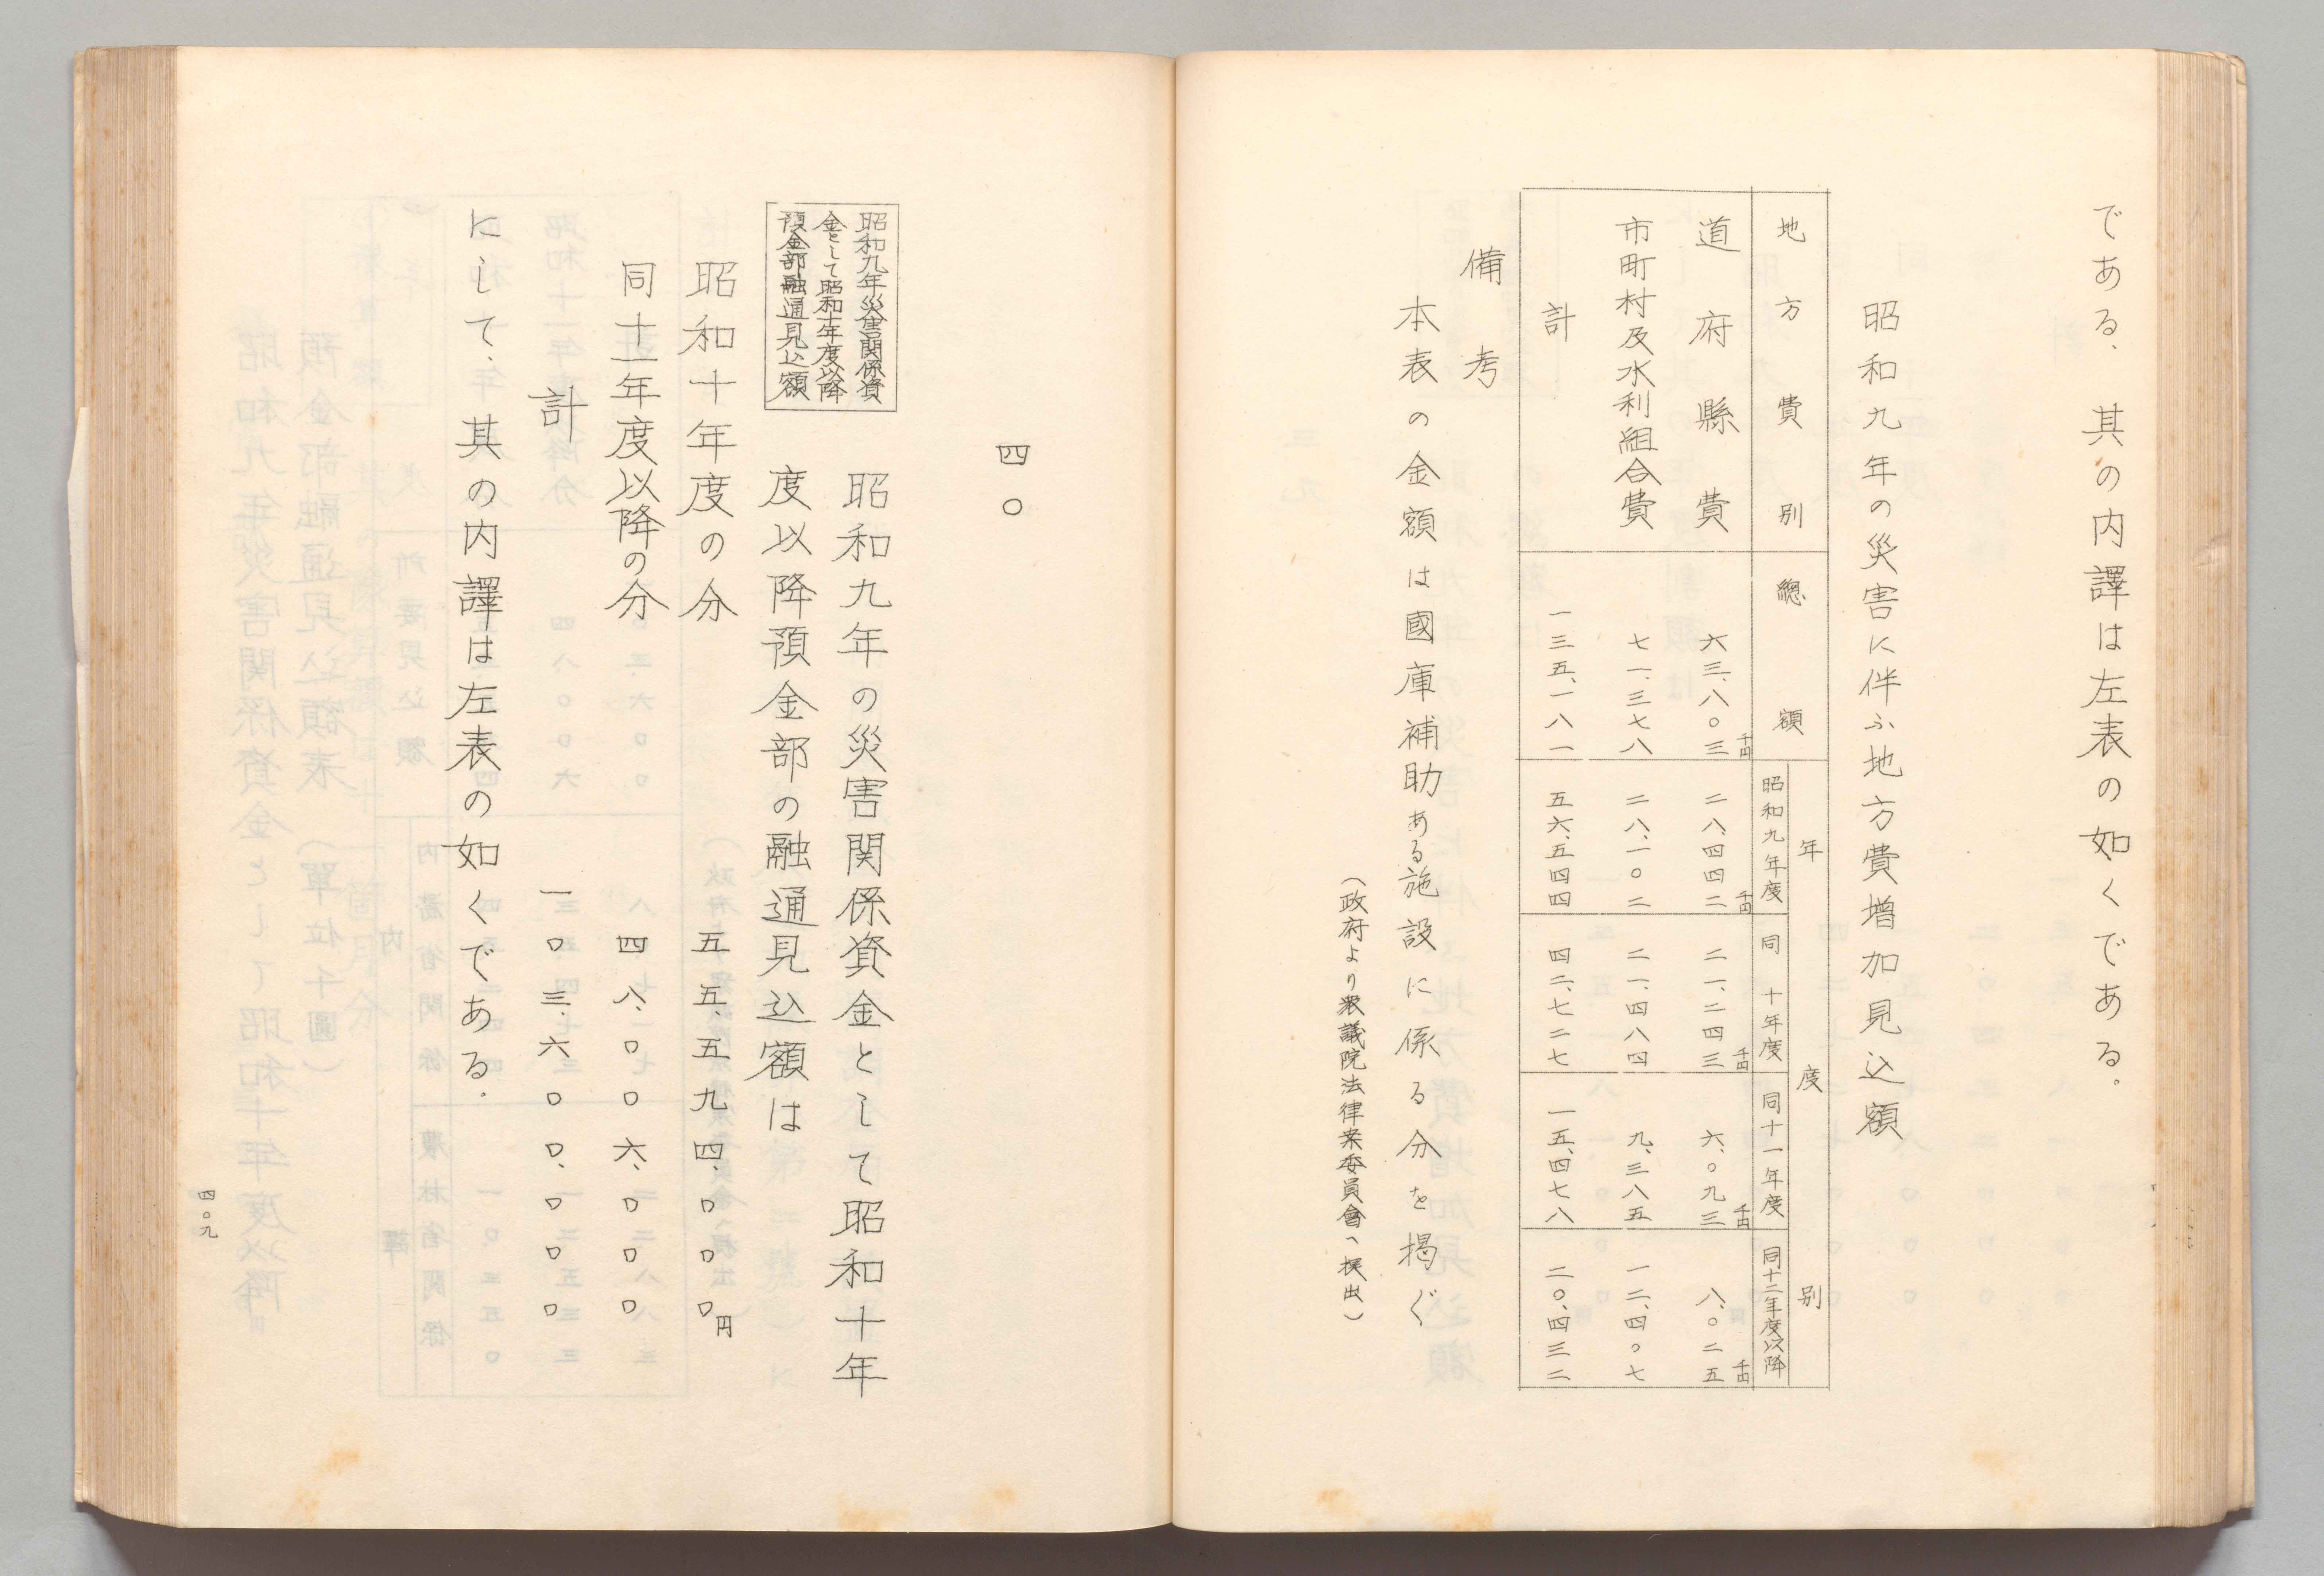 である、其の内譯は左表の如くである。
昭和九年の災害に伴ふ地方費増加見込額
地方費別
總額
年度別
昭和九年度
同十年度
同十一年度
同十二年度以降
道府縣費
六三、八〇三千円
二八、四四二千円
二一、二四三千円
六、〇九三千円
八、〇二五千円
市町村及水利組合費
七一、三七八
二八、一〇二
二一、四八四
九、三八五
一二、四〇七
計
一三五、一八一
五六、五四四
四二、七二七
一五、四七八
二〇、四三二
備考
本表の金額は國庫補助ある施設に係る分を掲ぐ
（政府より衆議院法律案委員會へ提出）
四〇
昭和九年災害関係資
金として昭和十年度以降
預金部融通見込額
昭和九年の災害関係資金として昭和十年
度以降預金部の融通見込額は
昭和十年度の分 五五、五九四、〇〇〇円
同十一年度以降の分 四八、〇〇六、〇〇〇
計 一〇三、六〇〇、〇〇〇
にして、其の内譯は左表の如くである。
四〇九